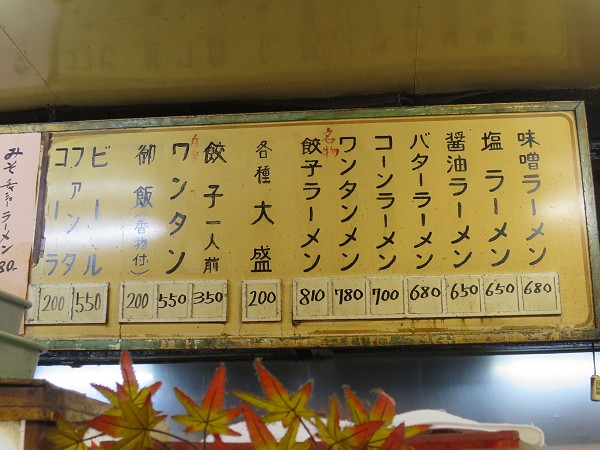 味噌ラーメン 680
塩ラーメン 650
醤油ラーメン 650
バターラーメン 680
コーンラーメン 700
ワンタンメン 780
名物
餃子ラーメン 810
各種大盛 200
餃子一人前 350
ワンタン 550
御飯(香物付) 200
ビール 550
ファンタ
コーラ 200
ラーメン